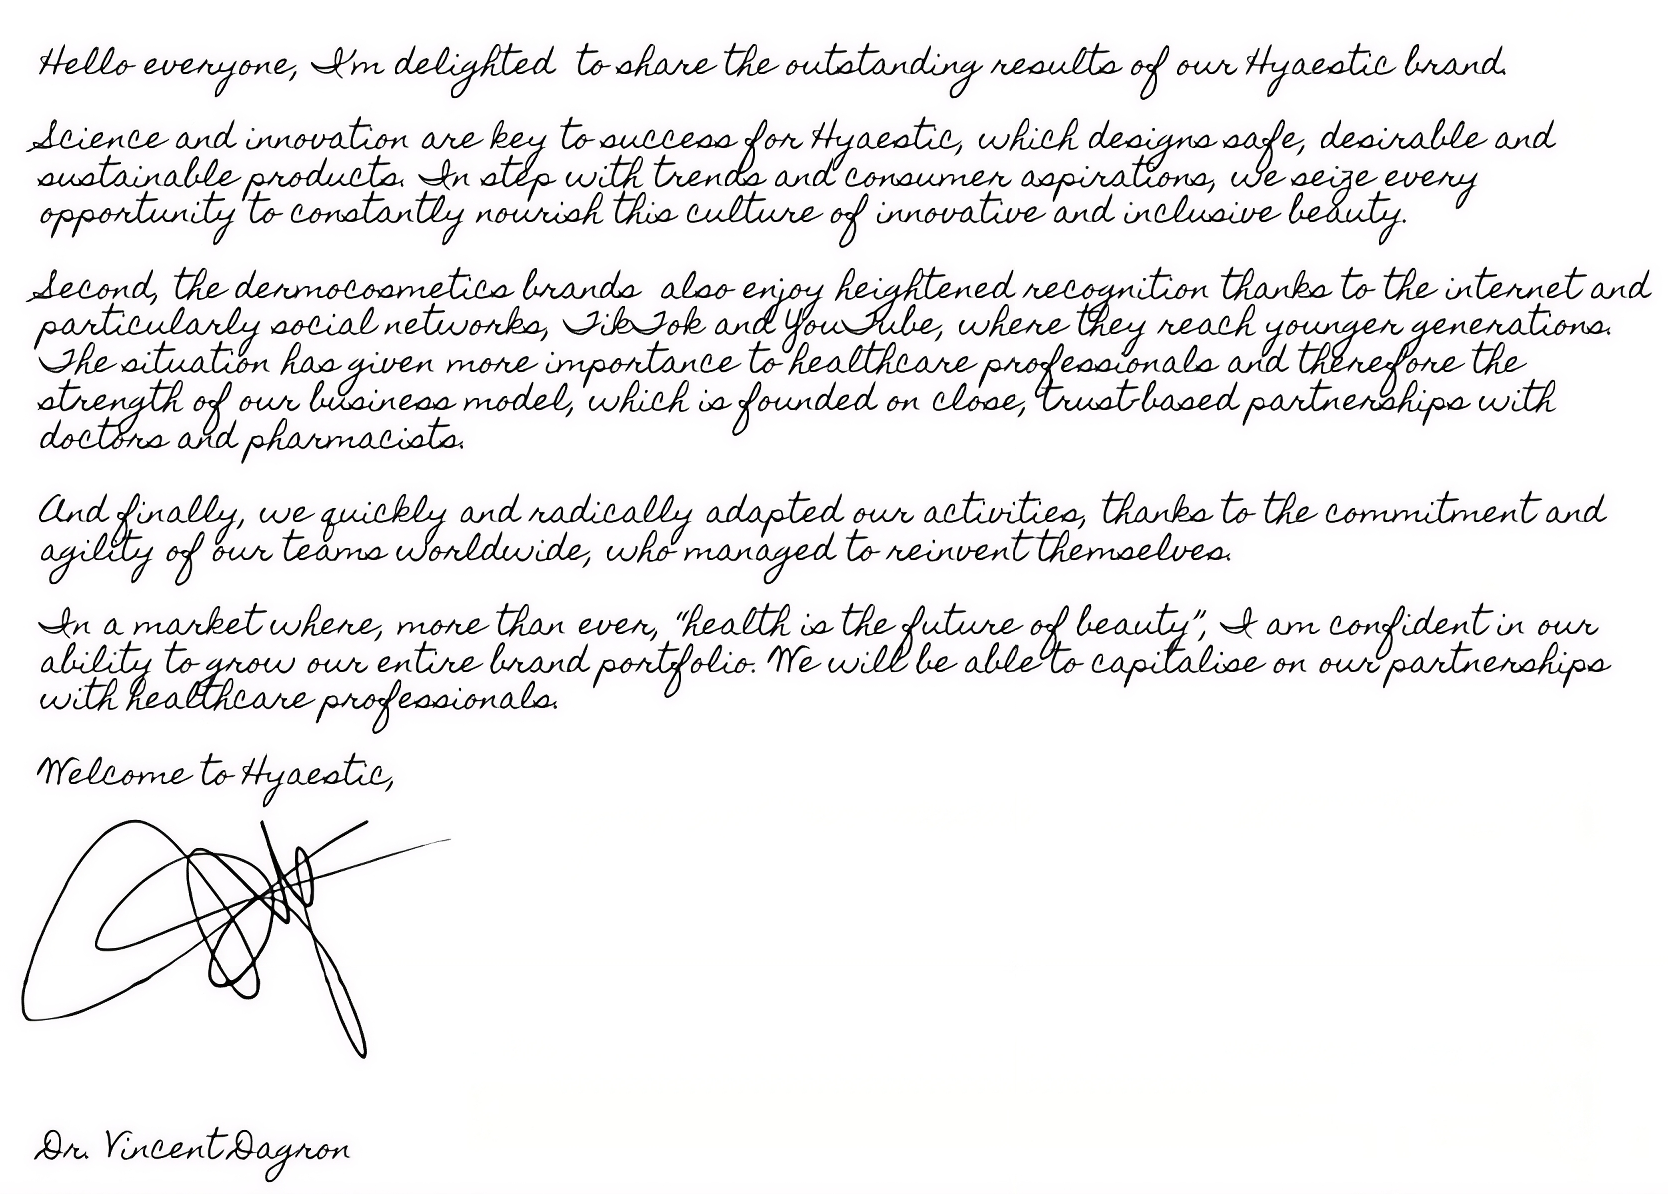 Hello everyone, I'm delighted to share the outstanding results of our Hyaestic brand.
Science and innovation are key to success for Hyaestic, which designs safe, desirable and
sustainable products. In step with trends and consumer aspirations, we seize every
opportunity to constantly nourish this culture of innovative and inclusive beauty.
Second, the dermocosmetics brands also enjoy heightened recognition thanks to the internet and
particularly social networks, TikTok and YouTube, where they reach younger generations.
The situation has given more importance to healthcare professionals and therefore the
strength of our business model, which is founded on close, trust-based partnerships with
doctors and pharmacists.
And finally, we quickly and radically adapted our activities, thanks to the commitment and
agility of our teams worldwide, who managed to reinvent themselves.
In a market where, more than ever, “health is the future of beauty”, I am confident in our
ability to grow our entire brand portfolio. We will be able to capitalise on our partnerships
with healthcare professionals.
Welcome to Hyaestic,
Dr. Vincent Dagron